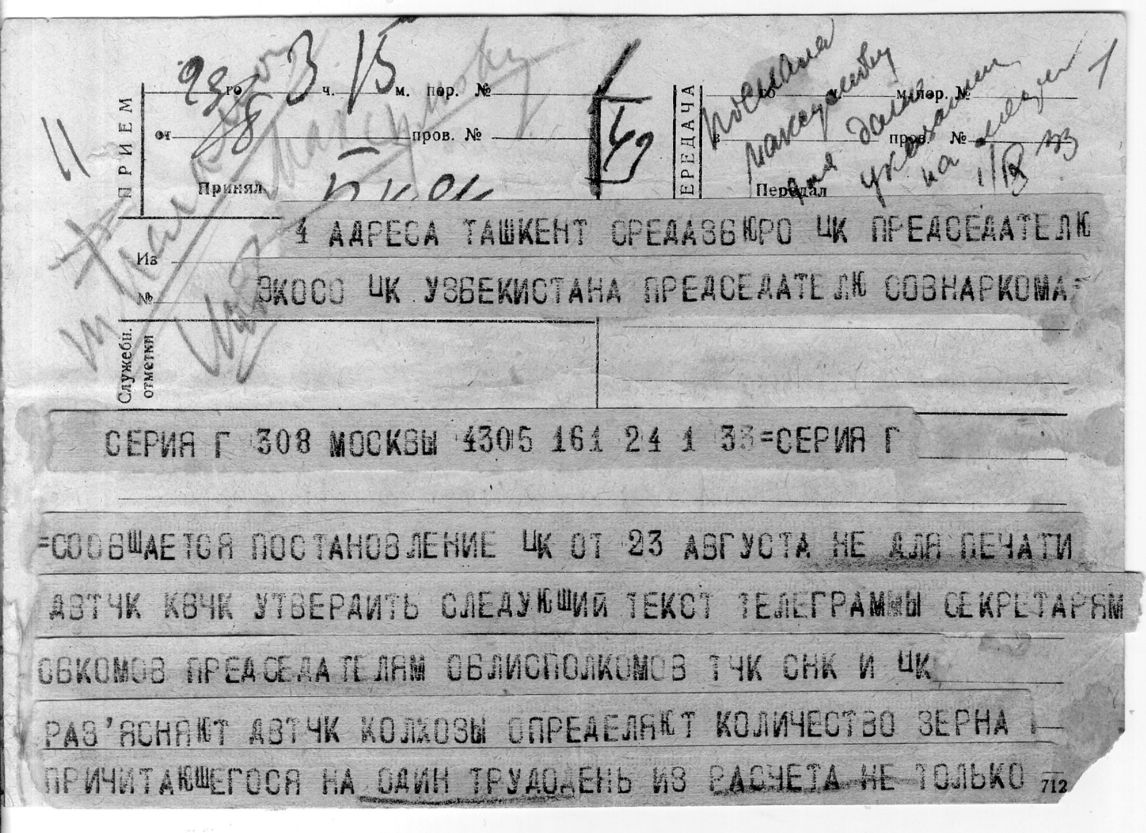 23го 3 ч. 15 м. пер. №
м. пер. №
от
пров. №
в
пров. №
ПРИЕМ
ПЕРЕДАЧА
Принял
Передал
послана
максумову
для дальн.
указания
на неделе
1/IX 33
4 АДРЕСА ТАШКЕНТ СРЕДАЗБЮРО ЦК ПРЕДСЕДАТЕЛЮ
Из
ЭКОСО ЦК УЗБЕКИСТАНА ПРЕДСЕДАТЕЛЮ СОВНАРКОМА=
№
Служебн. отметки
СЕРИЯ Г 308 МОСКВЫ 4305 161 24 1 33=СЕРИЯ Г
=СООБЩАЕТСЯ ПОСТАНОВЛЕНИЕ ЦК ОТ 23 АВГУСТА НЕ ДЛЯ ПЕЧАТИ
ДВТЧК КВЧК УТВЕРДИТЬ СЛЕДУЮЩИЙ ТЕКСТ ТЕЛЕГРАММЫ СЕКРЕТАРЯМ
ОБКОМОВ ПРЕДСЕДАТЕЛЯМ ОБЛИСПОЛКОМОВ ТЧК СНК И ЦК
РАЗ'ЯСНЯЮТ ДВТЧК КОЛХОЗЫ ОПРЕДЕЛЯЮТ КОЛИЧЕСТВО ЗЕРНА
ПРИЧИТАЮЩЕГОСЯ НА ОДИН ТРУДОДЕНЬ ИЗ РАСЧЕТА НЕ ТОЛЬКО
712